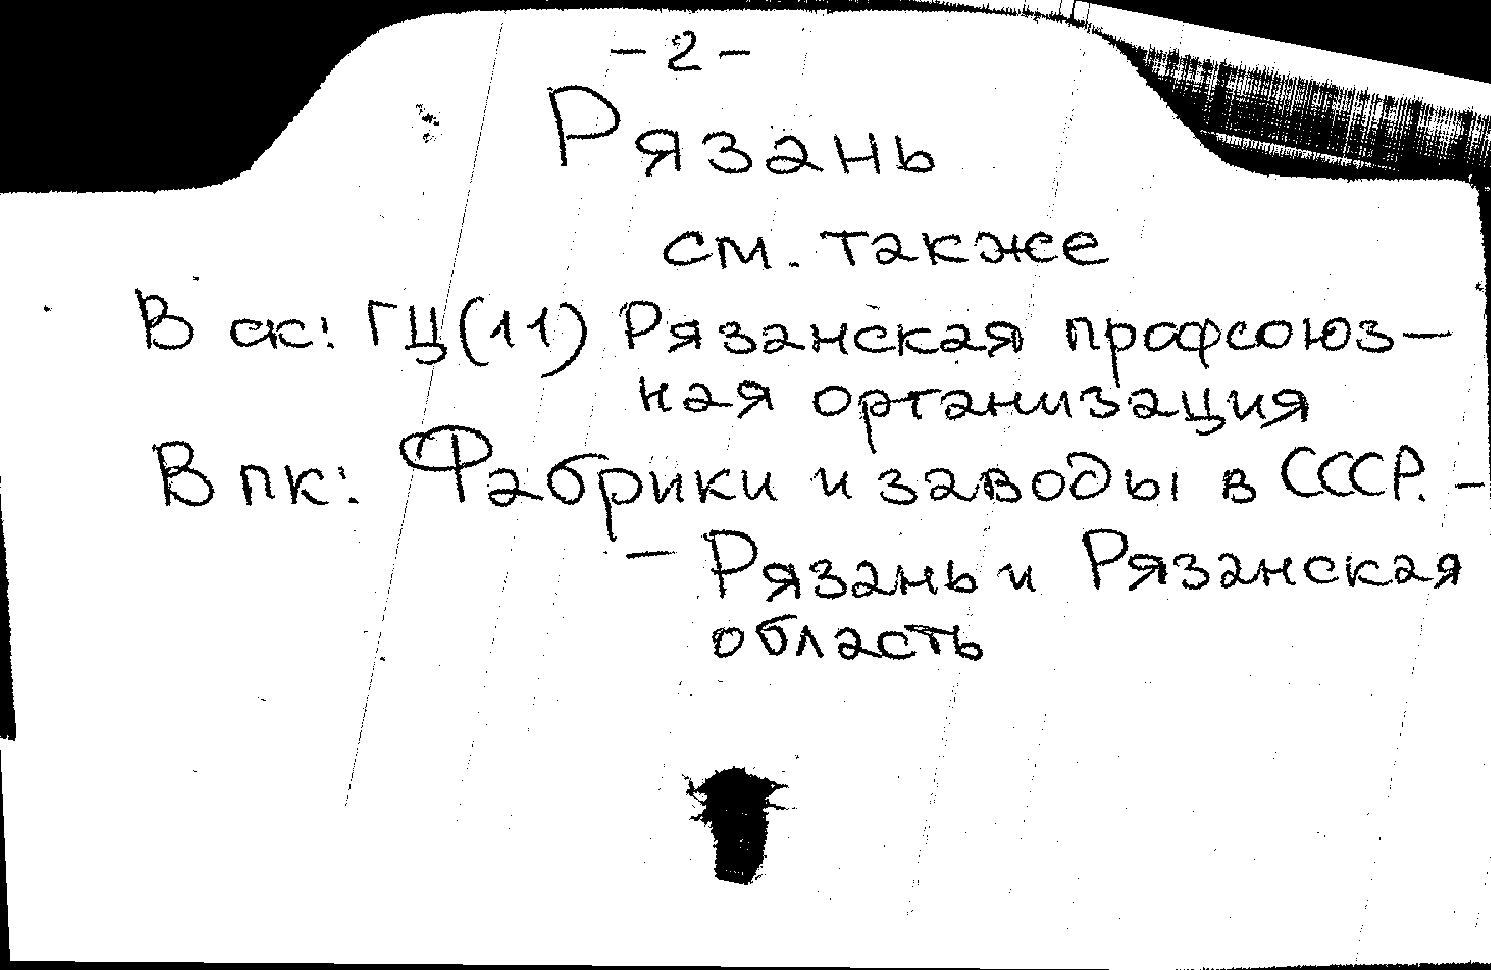 - 2 -
Рязань
см. также
В ск: ГЦ(11) Рязанская профсоюз-
ная организация
В пк: Фабрики и заводы в СССР. -
- Рязань и Рязанская
область